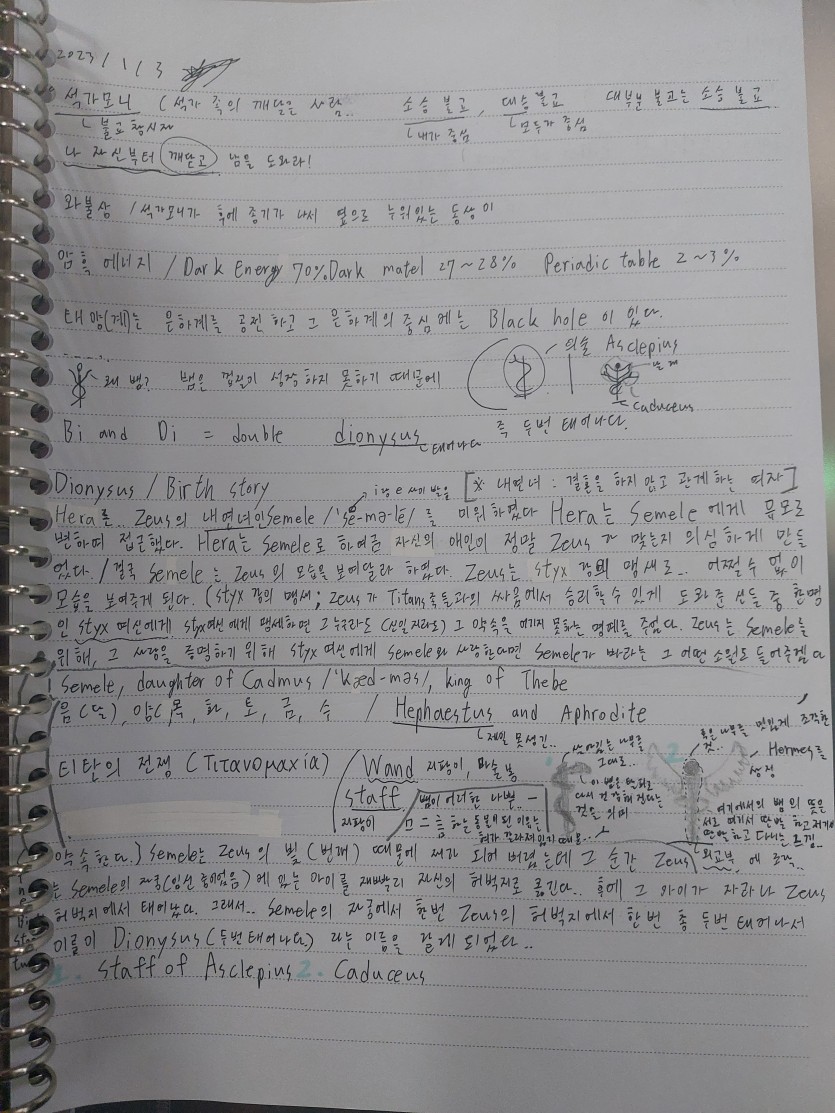 2023/1/3
석가모니 (석가 족의 깨달은 사람.. 소승 불교, 대승 불교 대부분 불교는 소승 불교
ㄴ불교 창시자 ㄴ내가 중심 ㄴ모두가 중심
나 자신부터 깨닫고 남을 도와라!
와불상 / 석가모니가 후에 종기가 나서 옆으로 누워있는 동상이
암흑 에너지 / Dark Energy 70% Dark matel 27~28% Periadic table 2~3%
태양(계)는 은하계를 공전하고 그 은하계의 중심에는 Black hole이 있다.
의술 Asclepius
날개
왜 뱀? 뱀은 껍질이 성장하지 못하기 때문에
Caduceus
Bi and Di = double dionysus 즉 두번 태어나다.
ㄴ태어나다
i랑 e 사이 발음
Dionysus / Birth story [※ 내연녀 : 결혼을 하지 않고 관계하는 여자]
Hera는.. Zeus의 내연녀인 Semele /'sé-mə-lē/를 미워하였다 Hera는 Semele에게 유모로
변하며 접근했다. Hera는 Semele로 하여금 자신의 애인이 정말 Zeus가 맞는지 의심하게 만들
었다. / 결국 Semele는 Zeus의 모습을 보여달라 하였다. Zeus는 styx 강의 맹세로.. 어쩔 수 없이
모습을 보여주게 된다. (styx 강의 맹세; Zeus가 Titans족들과의 싸움에서 승리할 수 있게 도와준 신들 중 한명
인 styx 여신에게 styx여신에게 맹세하면 그 누구라도 (신일지라도) 그 약속을 어기지 못하는 명예를 주었다. Zeus는 Semele를
위해, 그 사랑을 증명하기 위해 styx 여신에게 Semele와 사랑한다면 Semele가 바라는 그 어떤 소원도 들어주겠다
Semele, daughter of Cadmus /'kæd-məs/, king of Thebe
음(달), 양(, 목, 화, 토, 금, 수 / Hephaestus and Aphrodite
ㄴ제일 못생긴..
살아있는 나무를 그대로..
죽은 나무를 멋있게 조각한 것..
2.
Hermes를 상징
티탄의 전쟁 (Τιτανομαχία) Wand 지팡이, 마술봉
staff
지팡이
약속한다.) Semele는 Zeus의 빛(번개) 때문에 재가 되어 버렸는데 그 순간 Zeus
는 Semele의 자궁(임신 중이었음)에 있는 아이를 재빨리 자신의 허벅지로 옮긴다.. 후에 그 아이가 자라나 Zeus
허벅지에서 태어났다. 그래서.. Semele의 자궁에서 한번 Zeus의 허벅지에서 한번 총 두번 태어나서
이름이 Dionysus(두번 태어나다) 라는 이름을 갖게 되었다..
1. staff of Asclepius 2. Caduceus